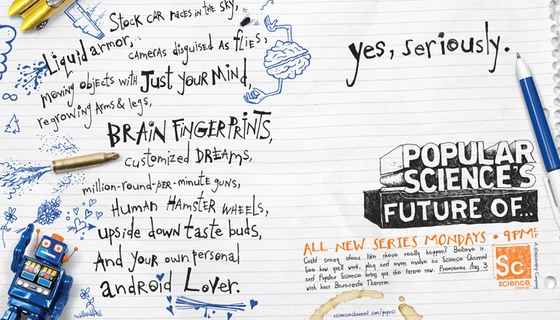 Stock car races in the sky,
Liquid armor,
cameras disguised as flies,
moving objects with Just your Mind,
regrowing arms & legs,
BRAIN FINGERPRINTS,
customized DREAMS,
million-round-per-minute guns,
Human Hamster wheels,
upside down taste buds,
And your own personal
android Lover.
yes, seriously.
POPULAR
SCIENCE'S
FUTURE OF...
ALL NEW SERIES MONDAYS • 9PM
Could crazy ideas like these really happen? Believe it.
See how you'll work, play and even evolve as Science Channel
and Popular Science bring you the future now. Premieres Aug 3
with host Baratunde Thurston.
Sc
science
sciencechannel.com/popsci